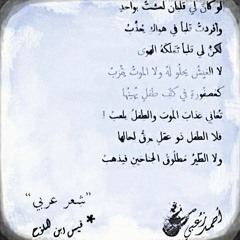 لو كان لي قلبان لعشت بواحدٍ
وأفردتُ قلباً في هواك يُعذَّبُ
لكنَّ لي قلباً تملّكه الهوى
لا العيشُ يحلو له ولا الموتُ يقربُ
كعصفورةٍ في كف طفلٍ يُهينها
تعاني عذاب الموت والطفلُ يلعبُ
فلا الطفل ذو عقلٍ يرقّ لحالها
ولا الطيرُ مطلوق الجناحين فيذهبُ
"شعر عربي"
قيس ابن الملوح
أحمد